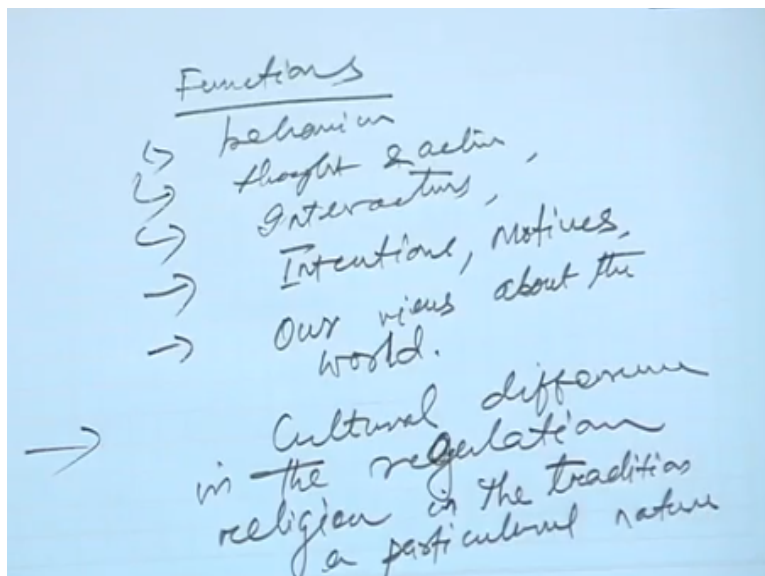 Functions
behaviour
thought & action,
Interactions,
Intentions, Motives,
Our views about the
world.
Cultural difference
in the regulation
religion in the tradition
a particular nature